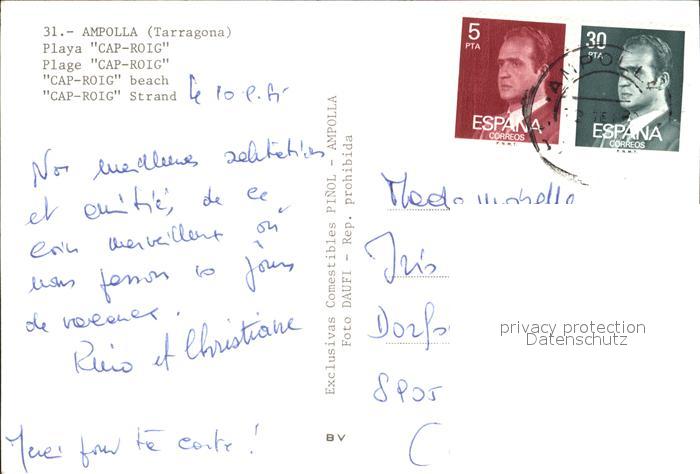 31.- AMPOLLA (Tarragona)
Playa "CAP-ROIG"
Plage "CAP-ROIG"
"CAP-ROIG" beach
"CAP-ROIG" Strand
Nos meilleures salutations
et amitiés de ce
coin merveilleux où
nous passons 10 jours
de vacances.
et Christiane
Merci pour ta carte!
Exclusivas Comestibles PIÑOL - AMPOLLA
Foto DAUFI - Rep. prohibida
BV
5
PTA
ESPAÑA
CORREOS
F.N.M.T.
30
PTA
ESPAÑA
CORREOS
F.N.M.T.
Iris
privacy protection
Datenschutz